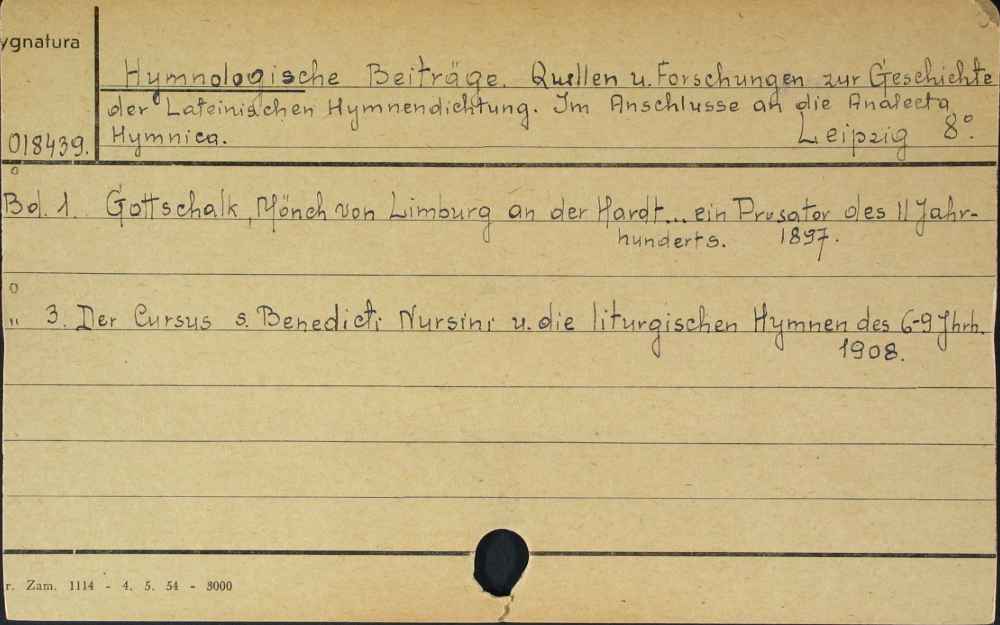 ygnatura
Hymnologische Beiträge. Quellen u. Forschungen zur Geschichte
der Lateinischen Hymnendichtung. Im Anschlusse an die Analecta
018439. Hymnica. Leipzig 8°.
Bd. 1. Gottschalk, Mönch von Limburg an der Hardt... ein Prosator des 11 Jahr-
hunderts. 1897.
„ 3. Der Cursus s. Benedicti Nursini u. die liturgischen Hymnen des 6-9 Jhrh.
1908.
r. Zam. 1114 - 4. 5. 54 - 3000